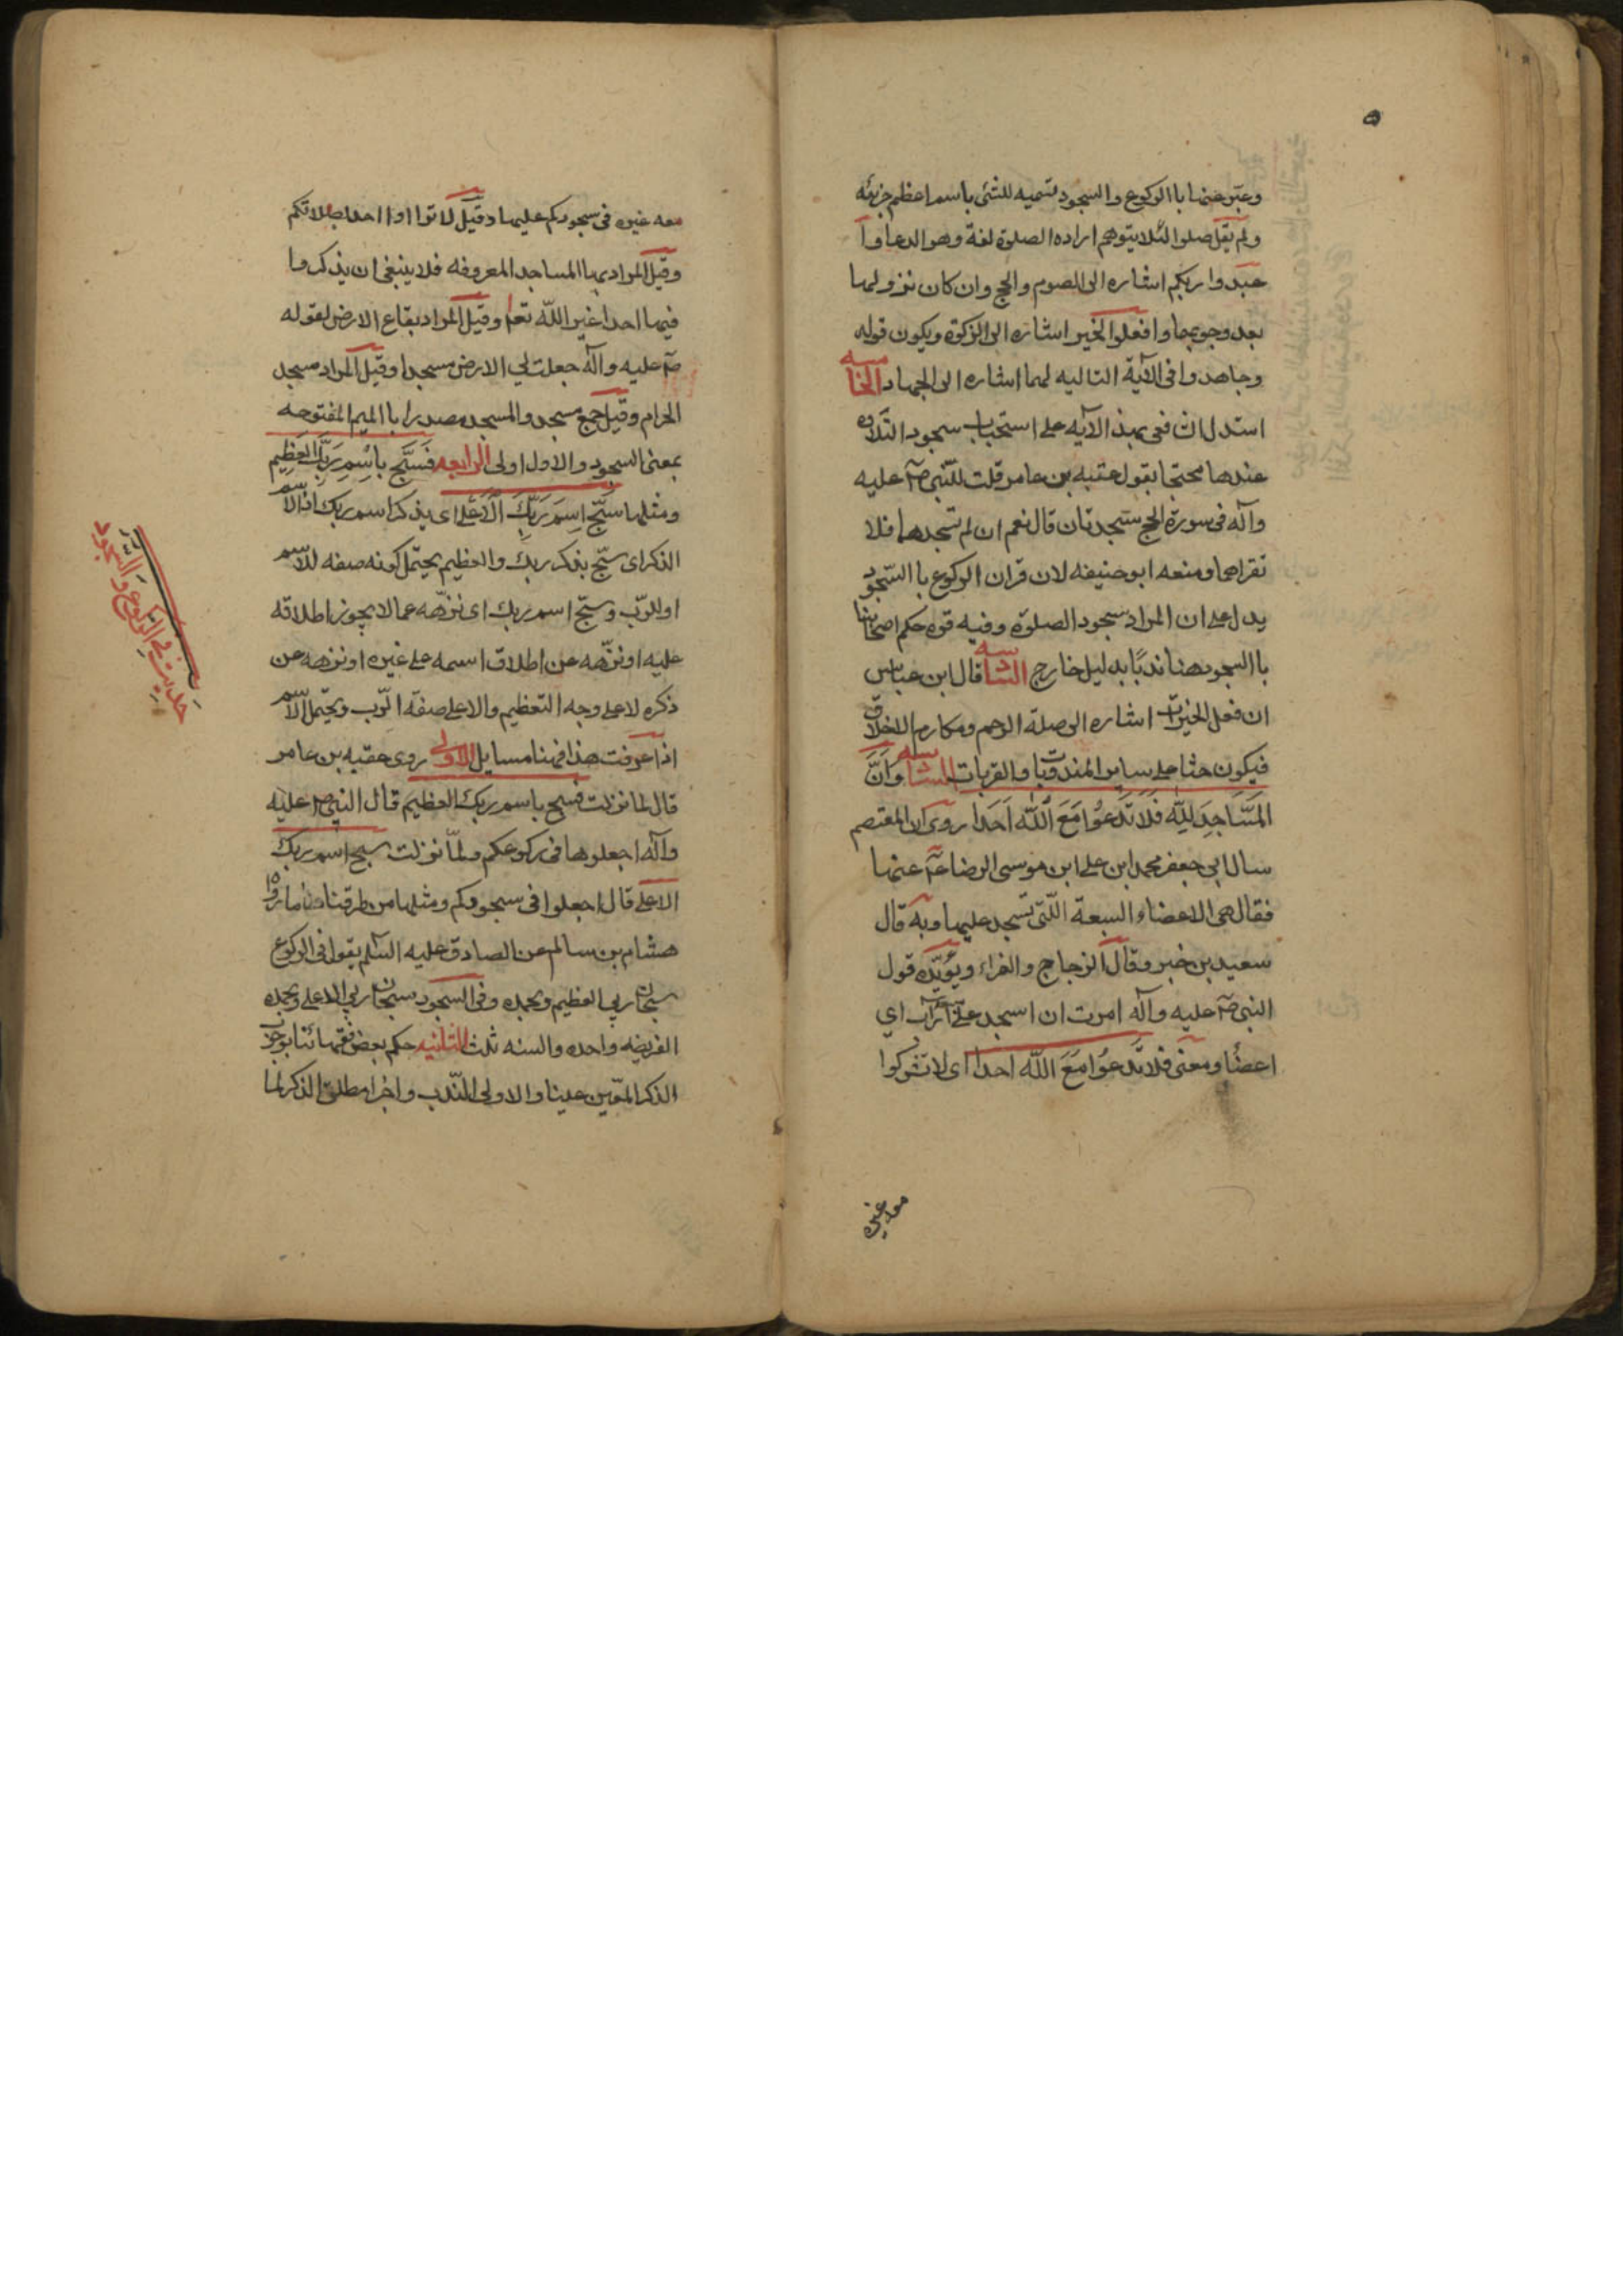 وعبّر عنها باالركوع والسجود تسميه للشئ باسم اعظم جزئه
ولم يقل صلوا لئلا يتوهم اراده الصلوة لغة وهو الدعا وا
عبدوا ربكم اشاره الى الصوم والحج وان كان نزولها
بعد وجوبهما وافعلوا الخير اشاره الى الزكوة ويكون قوله
وجاهدوا فى الآية التاليه لها اشاره الى الجهاد الخامسه
استدل الشافعى بهذ الآيه على استحباب سجود التلاوه
عندها محتجا بقول عقبه بن عامر قلت للنّبى صۤ عليه
وآله فى سورة الحج سجدتان قال نعم ان لم تسجدهما فلا
تقراهما ومنعه ابو حنيفه لان قران الركوع باالسّجود
يدل على ان المراد سجود الصلوة وفيه قوه حكم اصحابنا
باالسجود هنا ندبًا بدليل خارج قال ابن عباس
ان فعل الخيرات اشاره الى صلة الرحم ومكارم الاخلاق
فيكون حثا على ساير المندوبات والقربات وَاَنَّ
المَسَاجِدَ لِلّهِ فَلاَ تَدعُوا مَعَ اَللّهِ اَحَدا روى ان المعتصم
سال ابي جعفر محمد ابن على ابن موسى الرضا عۤ عنها
فقال هى الاعضاء السبعة اللّتى تسجد عليها وبه قال
سعيد بن خبير وقال الزجاج والفراء ويؤيّده قول
النبى صۤ عليه وآله امرت ان اسجد على سبعة آراب اي
اعضًا ومعنى فلا تَدعوُا مَعَ اللّه احدا اى لا تشركوا
معه غيره
معه غيره فى سجودكم عليها وقيل لا تراأوا احدا بصلاتكم
وقيل المراد بها المساجد المعروفه فلا ينبغى ان يذكر ما
فيها احدا غير اللّه تعا وقيل المراد بقاع الارض لقوله
صۤ عليه وآله جعلت لي الارض مسجدا وقيل المراد مسجد
الحرام وقيل جمع مسجد والمسجد مصدرا باالميم المفتوحه
بمعنى السجود والاول اولى الرابعه فَسَبَّح بِاسْمِ رَبِّكَ العَظِيم
ومثلها سَبِّح اِسمَ رَبِّكَ اَلاَعَلى اى بذكر اسم ربك اذ الاسم
الذكر اى سبّح بذكر ربك والعظيم يحتمل كونه صفه للاسم
او للرّب وسبّح اسم ربك اى نزّهه عما لا يجوز اطلاقه
عليه او نزّهه عن اطلاق اسمه على غيره او نزهه عن
ذكره لا على وجه التعظيم والاعلى صفة الرّب ويحتمل الاسم
اذا عرفت هذا فهنا مسايل الاولى روى عقبه بن عامر
قال لما نزلت فسبح باسم ربك العظيم قال النبى صۤ عليه
وآله اجعلوها فى ركوعكم ولمّا نزلت سبح اسم ربك
الاعلى قال اجعلوا فى سجودكم ومثلها من طرقنا ما رواه
هشام بن سالم عن الصادق عليه السلم يقول فى الركوع
سبحان ربي العظيم وبحمده وفى السجود سبحان ربي الاعلى وبحمده
الفريضه واحده والسنه ثلث الثانيه حكم بعض فقهائنا بوجوب
الذكر المعين عينا والاولى النّدب واخرا مطلق الذكر لما